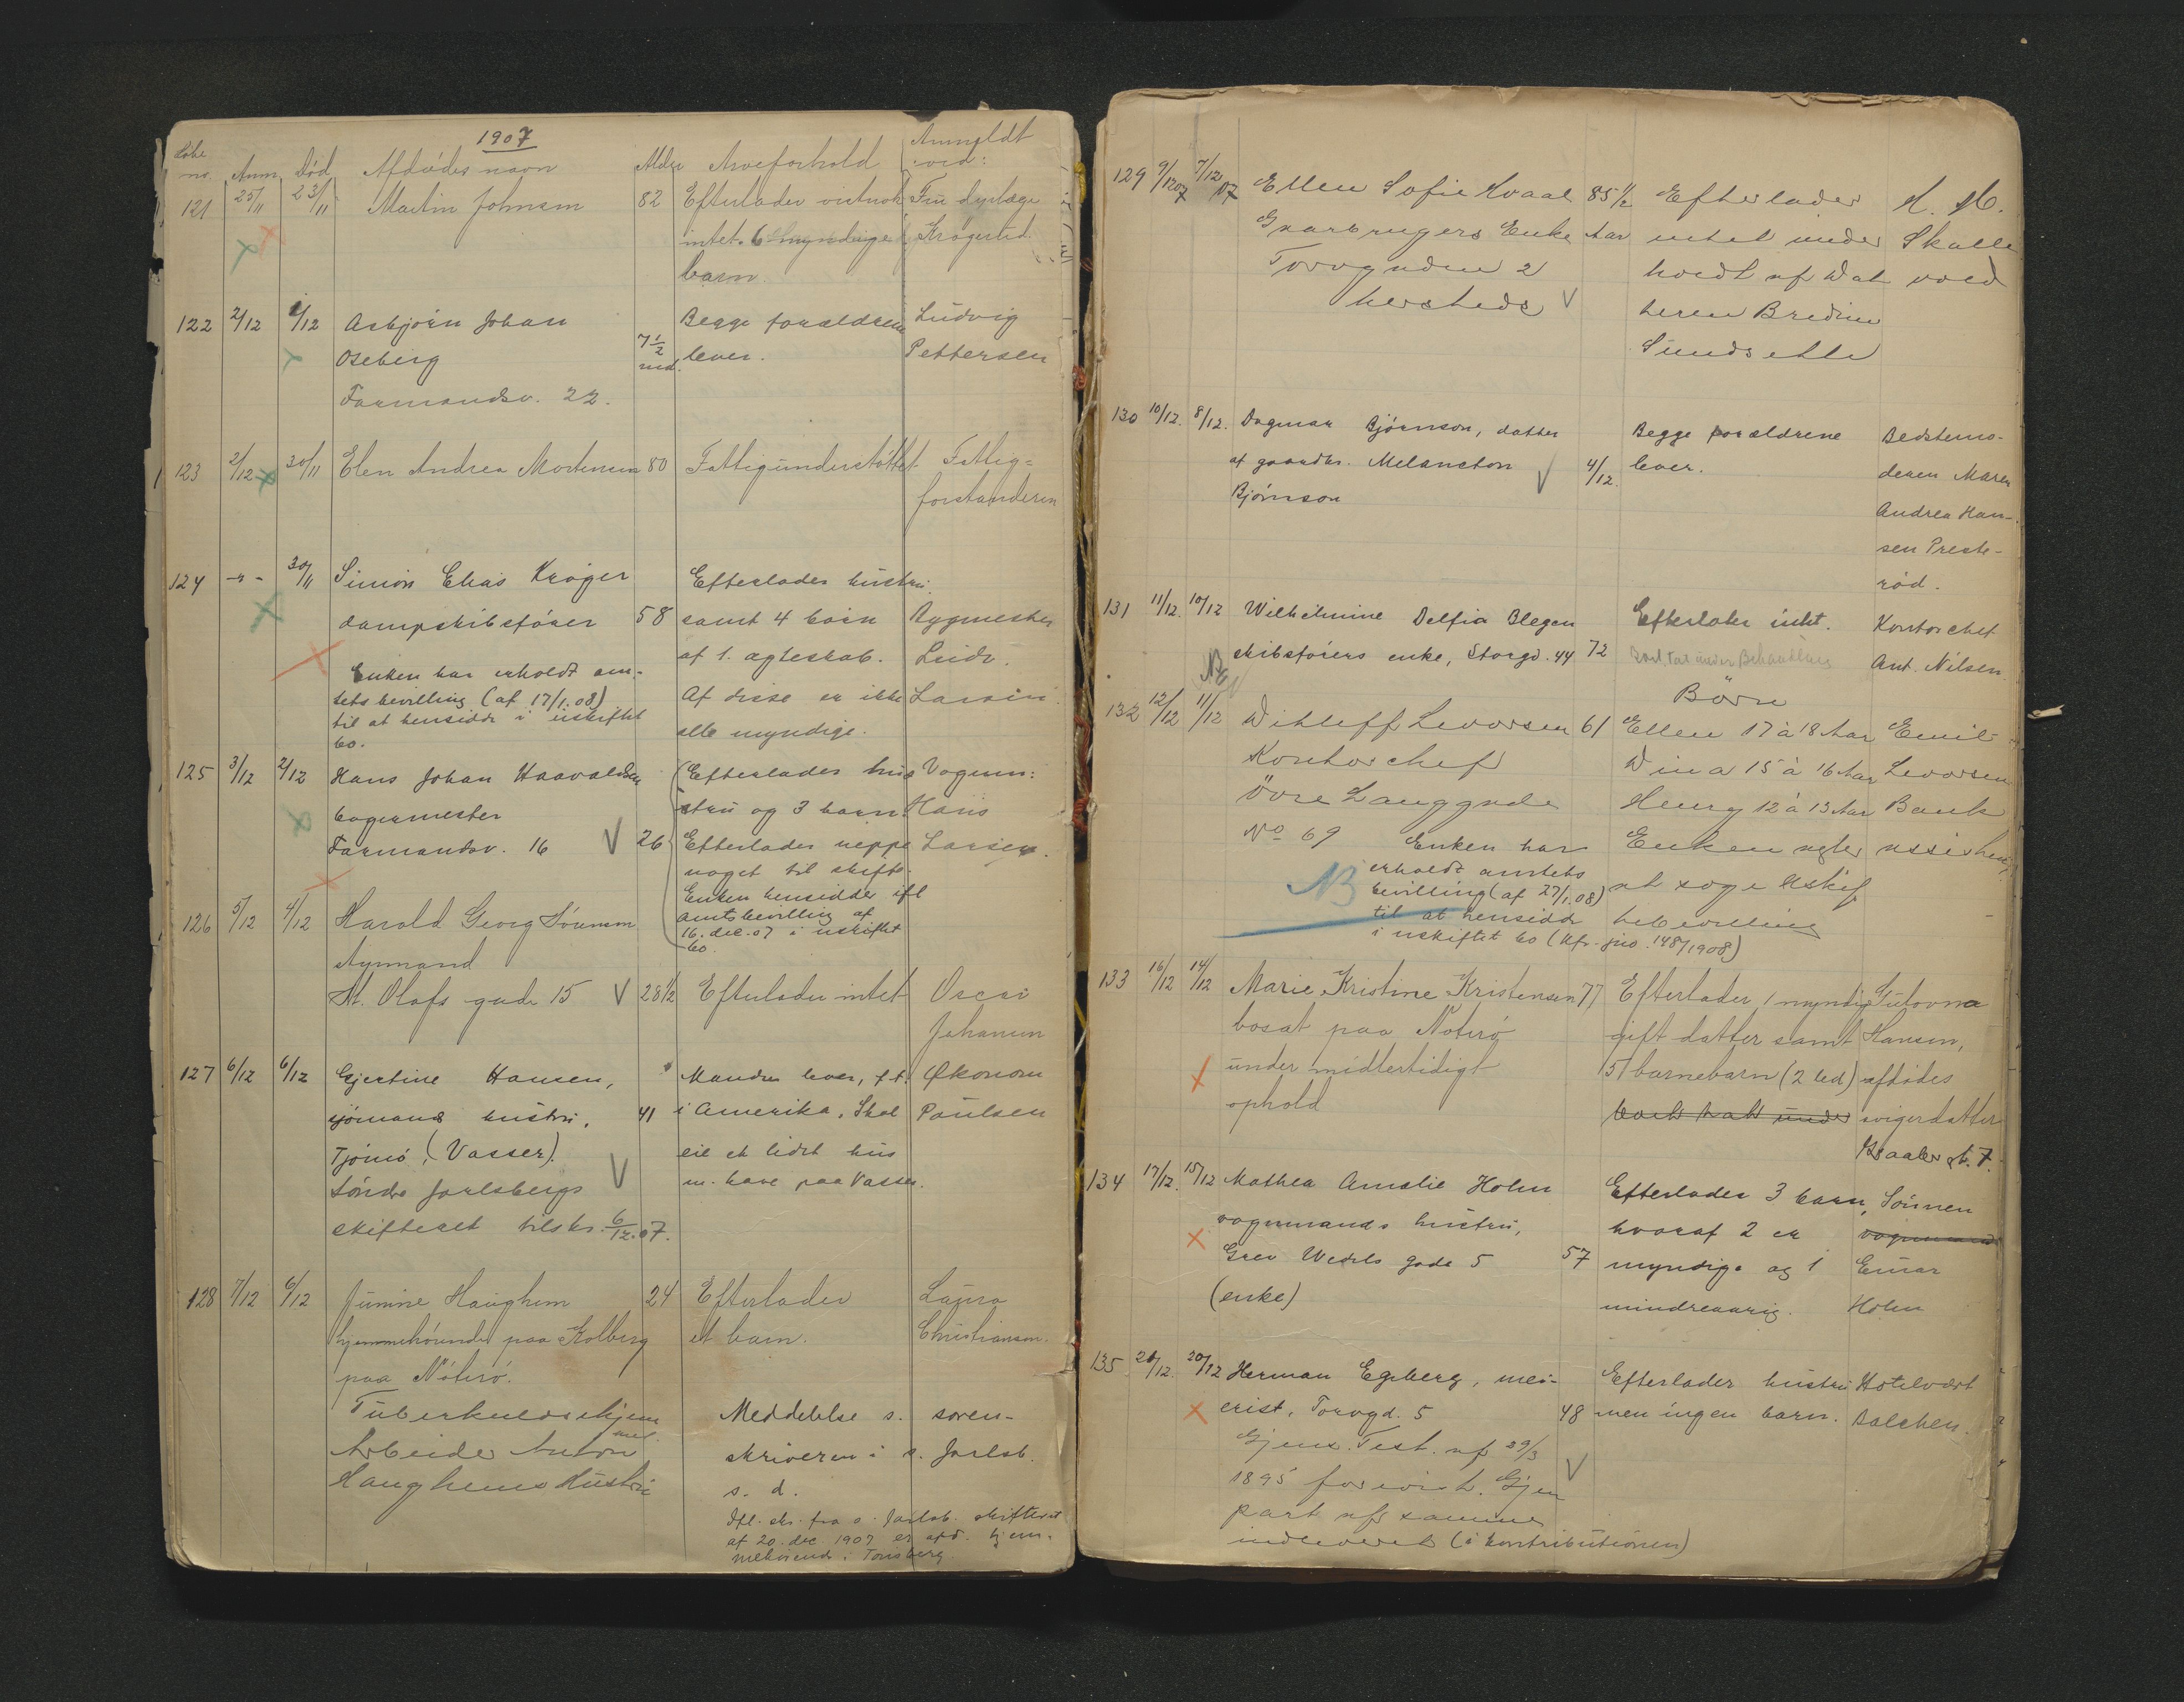 1907
Løbe no. Anm. Død Afdødes navn Alder Arveforhold Anmeldt ved:
121 25/11 23/11 Martin Johnsen 82 Efterlader vistnok Fru dyrlæge
intet. 6 myndige Krogerud.
barn.
122 2/12 1/12 Asbjørn Johan Begge forældrene Ludvig
Oseberg 7 1/2 md. lever. Pettersen
Farmandsv. 22.
123 2/12 30/11 Elen Andrea Mortensen 80 Fattigunderstøttet Fattig=
forstanderen
124 -"- 30/11 Simon Elias Krøger Efterlader hustru
dampskibsfører 58 samt 4 børn Rygmester
af 1. ægteskab.
Enken har erholdt am- Af disse er ikke Larsen
tets bevilling (af 17/1.08) alle myndige.
til at hensidde i uskiftet
bo.
125 3/12 2/12 Hans Johan Haavaldsen (Efterlader hu- Vognm:
bagermester stru og 3 barn. Hans
Farmandsv. 16 V 26 Efterlader neppe Larsen.
noget til skifte.
Enken hensidder ifl
amtsbevilling af
16. dec. 07 i uskiftet
bo.
126 5/12 4/12 Harald Georg Sørensen
Styrmand
St. Olafs gade 15 V 28 1/2 Efterlader intet Oscar
Johansen
127 6/12 6/12 Gjertine Hansen, Manden lever, f.t. Økonom
sjømands hustru, 41 i Amerika. Skal Paulsen
Tjømø, (Vasser). eie et lidet hus
Søndre Jarlsbergs V m. have paa Vasser.
skifteret tilskr. 6/12.07.
128 7/12 6/12 Jumine Haughem 24 Efterlader Laura
hjemmehørende paa Kolberg et barn. Christiansen.
paa Nøterø.
Tuberkulosehjemmet Meddelelse s. soren-
Arbeider Anton skriveren i s. Jarlsb.
Haughems Hustru s. d.
Ifl. skr. fra s. Jarlsb. skifteret
af 20. dec 1907 er afd. hjem-
mehørende i Tønsberg.
129 9/12 07 7/12 07 Ellen Sofie Kvaal 85 1/2 Efterlader M.
Gaarbrugers Enke Aar intet under Skalle
Torvgaden 2 holdt af Dat vold
hersteds V teren Bredine
Sundsette
130 10/12. 8/12. Dagmar Bjørnson, datter Begge forældrene Bedstemo-
af gaardbr. Melancton V 4/12. lever. deren Maren
Bjørnson Andrea Han-
sen Preste-
rød.
131 11/12. 10/12 Wilhelmine Delfia Blegen Efterlater intet. Kontorchef
skibsførers enke, Storgd. 44 72 Ant. Nilsen.
NB
132 12/12 11/12 Ditleff Levorsen 61 Børn
Ellen 17 à 18 Aar Emil
Kontorchef Dina 15 à 16 Aar Levorsen
Övre Langgade Henry 12 à 13 Aar Bank
No 69 Enken har Enken agter assistent
erholdt amtets
NB bevilling (af 27/1.08) at søge Uskif
til at hensidde tebevilling
i uskiftet bo (kfr. jno. 148/1908)
133 16/12 14/12 Marie Kristine Kristensen 77 Efterlader 1 myndig Gulovna
bosat paa Nøterø gift datter samt Hansen,
under midlertidigt 5 barnebarn (2 led) afdødes
ophold svigerdatter
134 17/12. 15/12 Mathea Amalie Holm Efterlader 3 barn, Sønnen
vognmands hustru, hvoraf 2 er vognmand
Grev Wedels gade 5 57 myndige og 1 Einar
(enke) mindreaarig. Holm
135 21/12. 20/12 Herman Egeberg, mei- Efterlader hustru Hotelvært
erist, Torvgd. 5 48 men ingen barn. Balchen.
Gjens. Test. af 29/3
1895 forevist. Gjen V
part af samme
indleveret (i kontributionen)